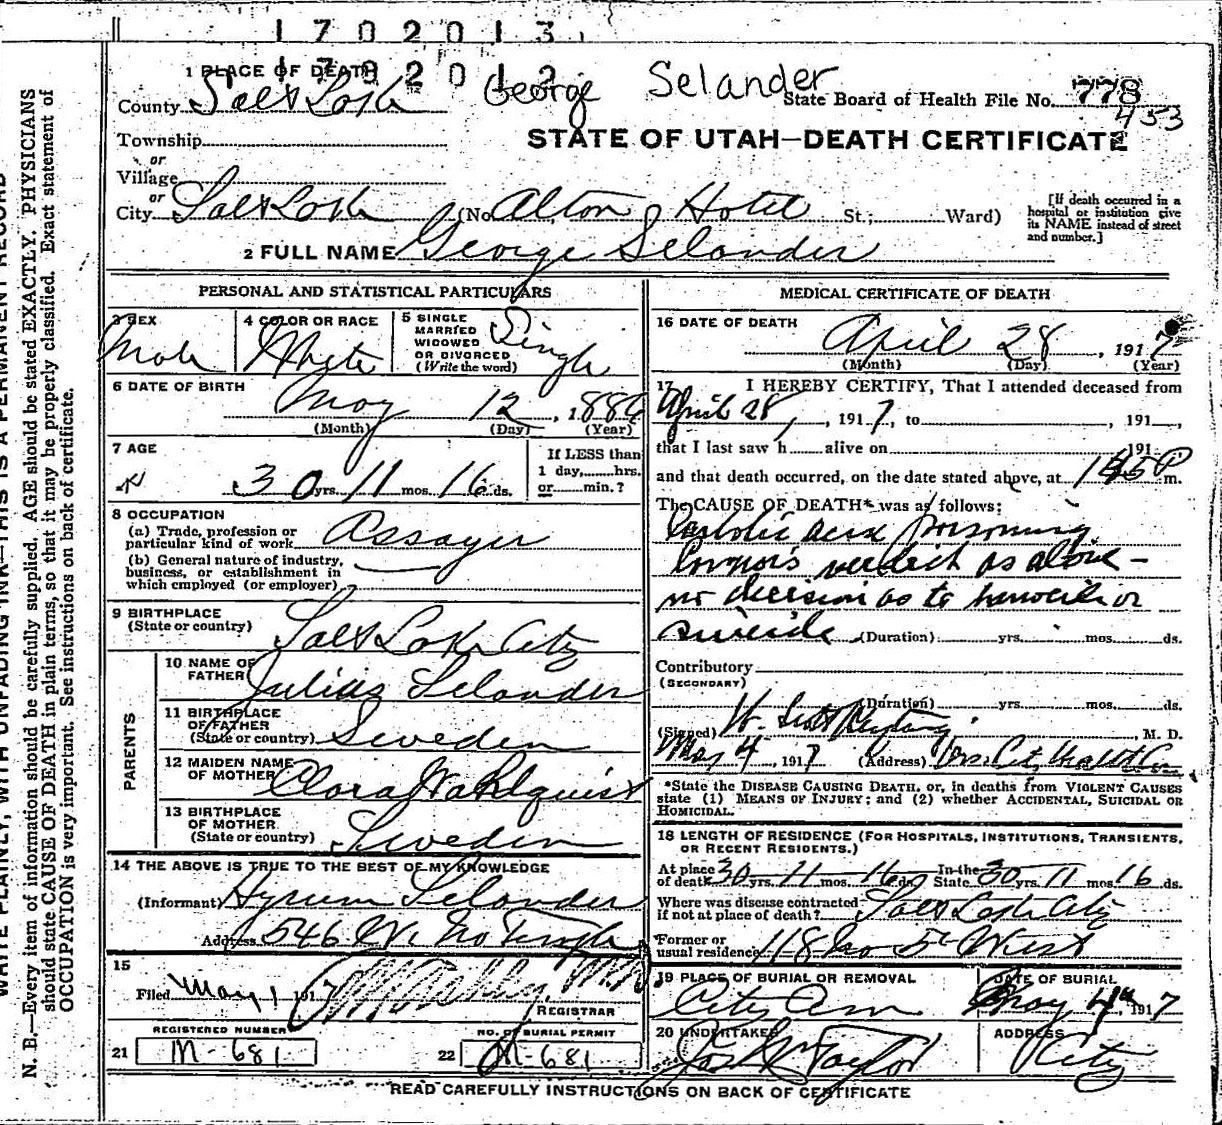 1702013
1702013
1 PLACE OF DEATH
George Selander
County Salt Lake
State Board of Health File No. 778
453
Township
STATE OF UTAH—DEATH CERTIFICATE
or
Village
or
City Salt Lake (No. Alton Hotel St.; Ward)
[If death occurred in a hospital or institution give its NAME instead of street and number.]
2 FULL NAME George Selander
PERSONAL AND STATISTICAL PARTICULARS
3 SEX
Male
4 COLOR OR RACE
White
5 SINGLE
MARRIED
WIDOWED
OR DIVORCED
(Write the word)
Single
6 DATE OF BIRTH
May 12, 1886
(Month) (Day) (Year)
7 AGE
30 yrs. 11 mos. 16 ds.
If LESS than
1 day, hrs.
or min.?
8 OCCUPATION
(a) Trade, profession or
particular kind of work Assayer
(b) General nature of industry,
business, or establishment in
which employed (or employer)
9 BIRTHPLACE
(State or country) Salt Lake City
PARENTS
10 NAME OF
FATHER Julius Selander
11 BIRTHPLACE
OF FATHER
(State or country) Sweden
12 MAIDEN NAME
OF MOTHER Clara Wahlquist
13 BIRTHPLACE
OF MOTHER
(State or country) Sweden
14 THE ABOVE IS TRUE TO THE BEST OF MY KNOWLEDGE
(Informant) Hyrum Selander
Address 546 W. No Temple
15
Filed May 1 1917
REGISTRAR
REGISTERED NUMBER
21 M-681
NO. OF BURIAL PERMIT
22 M-681
MEDICAL CERTIFICATE OF DEATH
16 DATE OF DEATH
April 28, 1917
(Month) (Day) (Year)
17 I HEREBY CERTIFY, That I attended deceased from
April 28, 1917, to 191
that I last saw h alive on 191
and that death occurred, on the date stated above, at 145 P m.
The CAUSE OF DEATH* was as follows:
Carbolic acid poisoning
Coroner's verdict as above—
no decision as to homicide or
suicide (Duration) yrs. mos. ds.
Contributory
(SECONDARY)
(Duration) yrs. mos. ds.
(Signed) M. D.
May 4, 1917 (Address)
*State the DISEASE CAUSING DEATH, or, in deaths from VIOLENT CAUSES
state (1) MEANS OF INJURY; and (2) whether ACCIDENTAL, SUICIDAL OR
HOMICIDAL.
18 LENGTH OF RESIDENCE (FOR HOSPITALS, INSTITUTIONS, TRANSIENTS,
OR RECENT RESIDENTS.)
At place
of death 30 yrs. 11 mos. 16 ds. In the State 30 yrs. 11 mos. 16 ds.
Where was disease contracted
if not at place of death? Salt Lake City
Former or
usual residence 118 No 5th West
19 PLACE OF BURIAL OR REMOVAL
City Cem
DATE OF BURIAL
May 4th, 1917
20 UNDERTAKER
Taylor
ADDRESS
City
READ CAREFULLY INSTRUCTIONS ON BACK OF CERTIFICATE
WRITE PLAINLY, WITH UNFADING INK—THIS IS A PERMANENT RECORD
N. B.—Every item of information should be carefully supplied. AGE should be stated EXACTLY. PHYSICIANS
should state CAUSE OF DEATH in plain terms, so that it may be properly classified. Exact statement of
OCCUPATION is very important. See instructions on back of certificate.